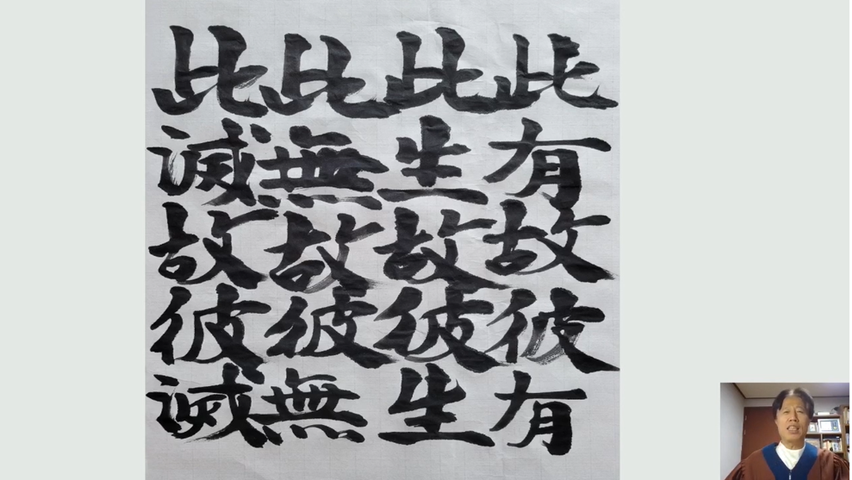 此有故彼有
此生故彼生
此無故彼無
此滅故彼滅